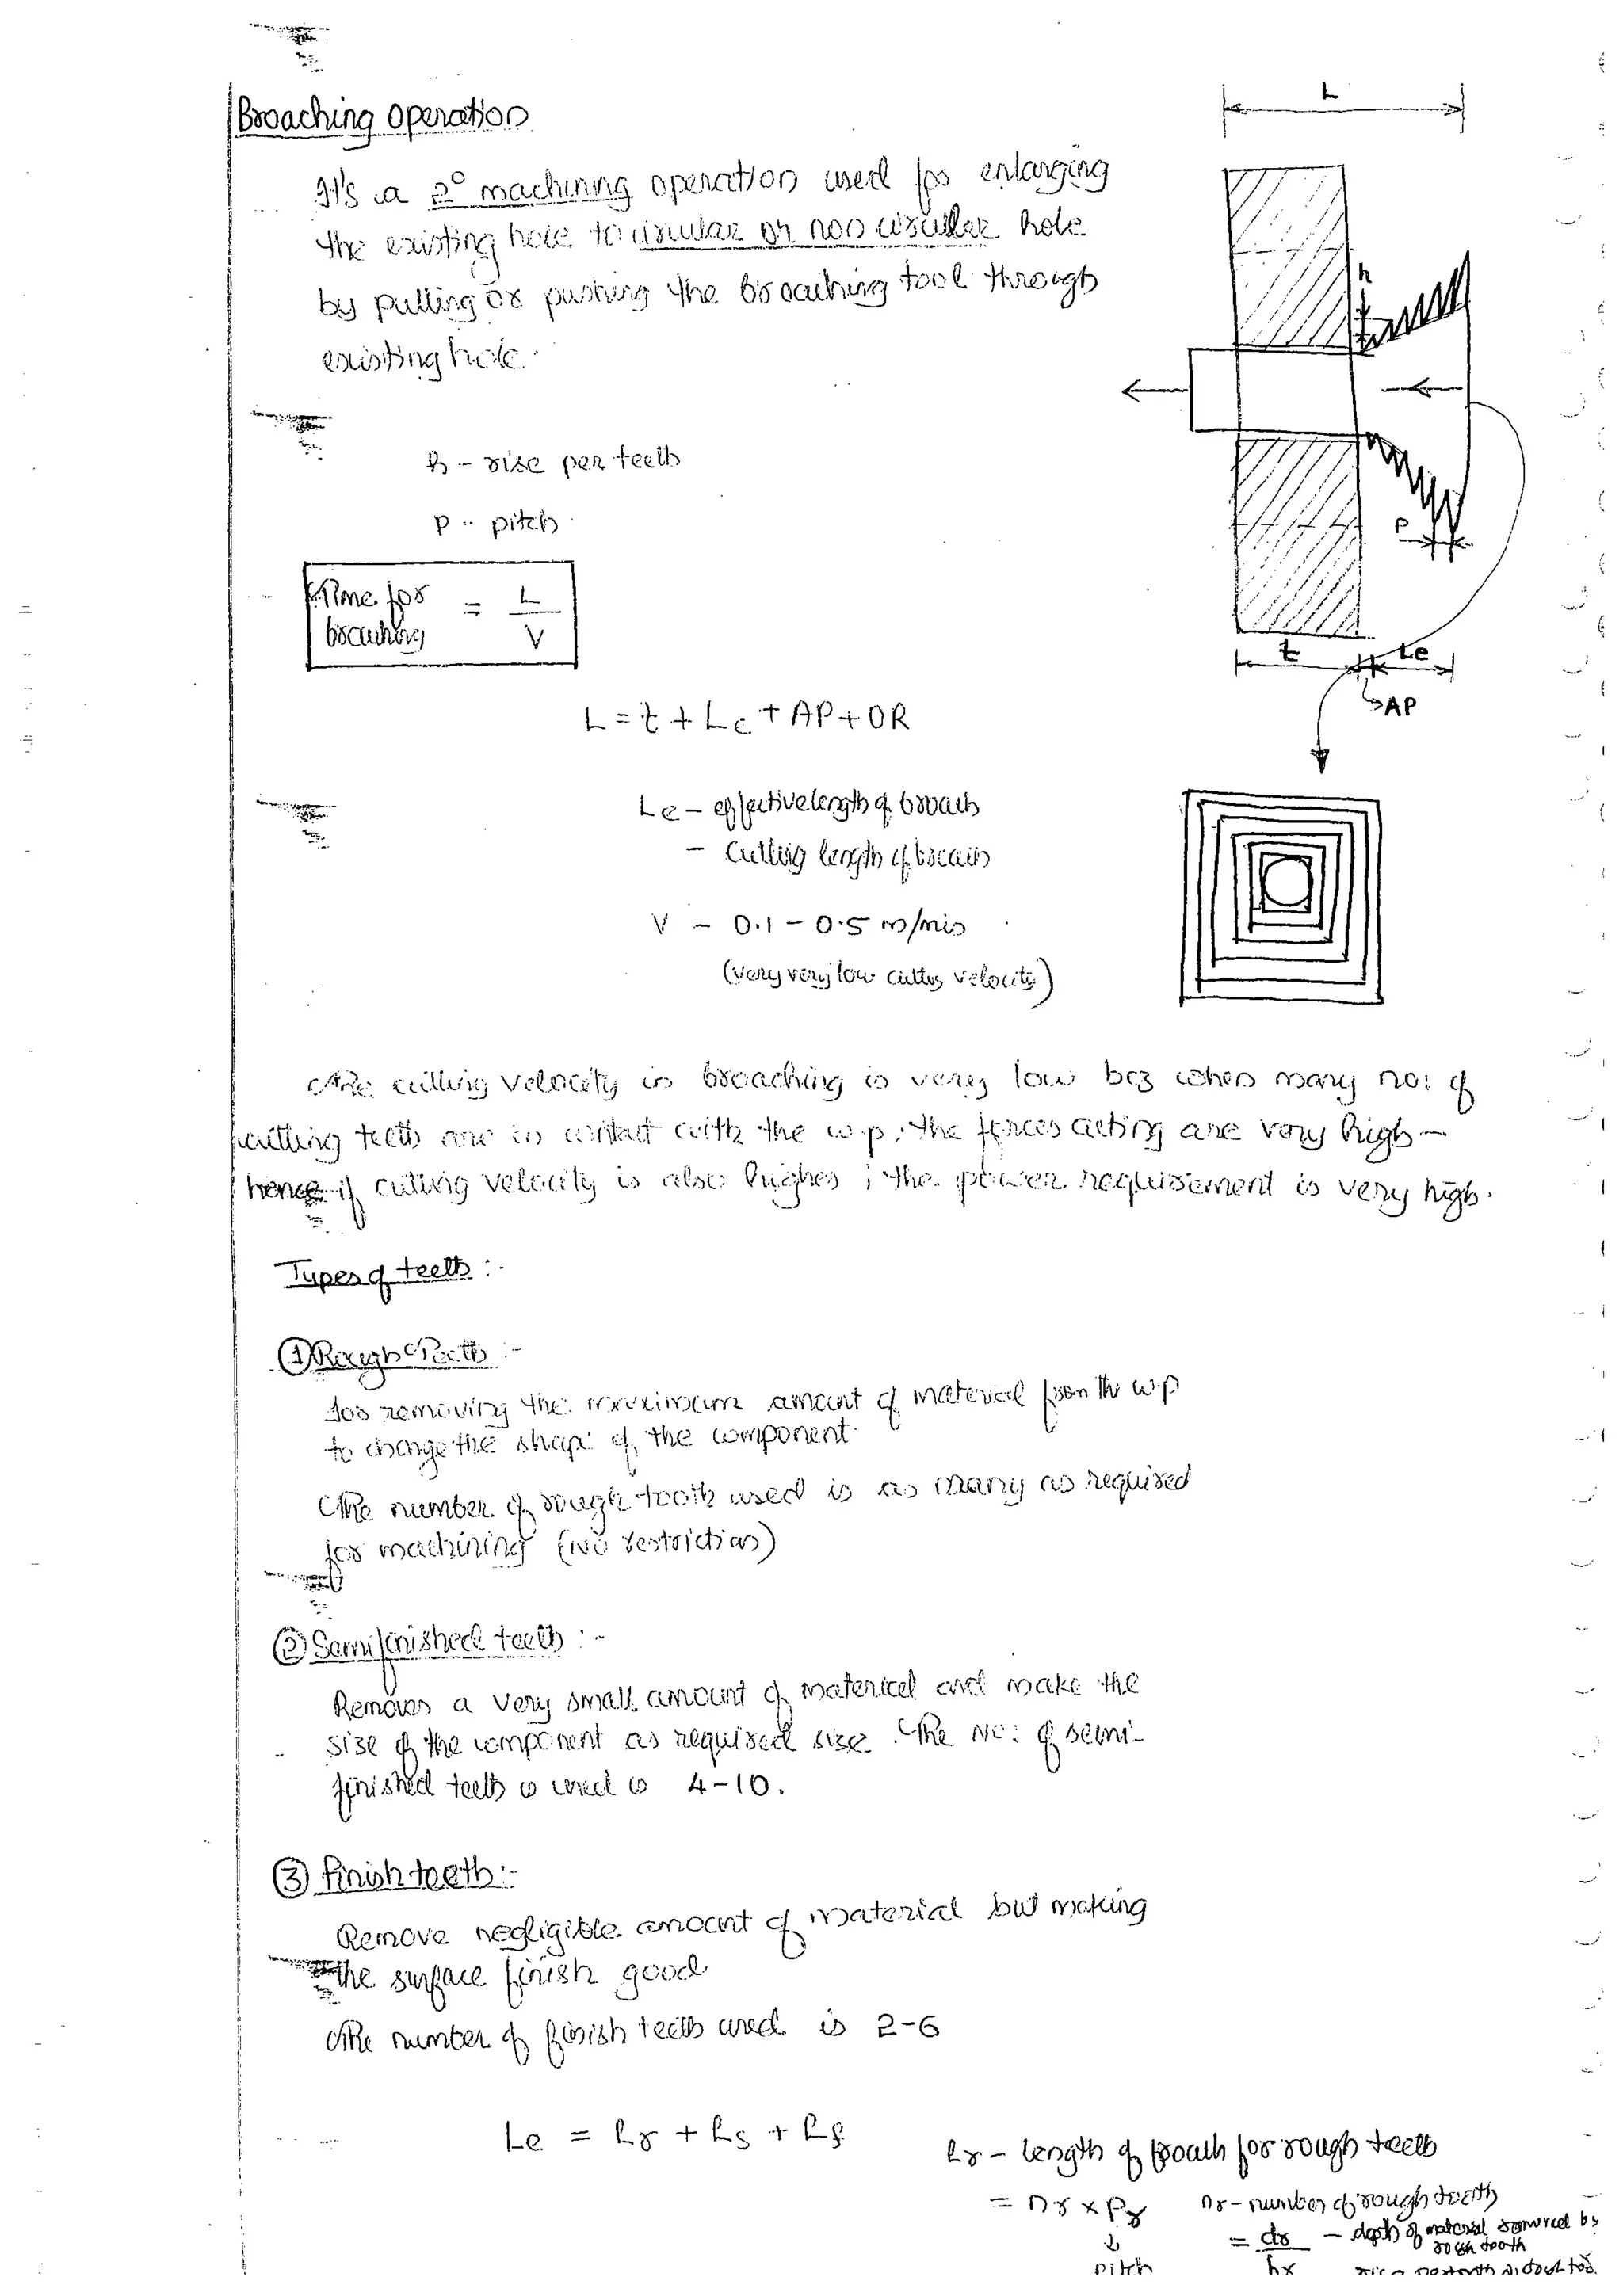 Broaching operation
It's a 2° machining operation used for enlarging
the existing hole to circular or non circular hole
by pulling or pushing the broaching tool through
existing hole.
h - rise per teeth
p - pitch
Time for broaching = L / V
L = t + Le + AP + OR
Le - effective length of broach
- Cutting length of broach
V - 0.1 - 0.5 m/min
(very very low cutting velocity)
L
h
P
t
Le
AP
The cutting velocity in broaching is very low bcz when many no: of
cutting teeth are in contact with the w.p, the forces acting are very high -
hence if cutting velocity is also higher ; the power requirement is very high.
Types of teeth :-
① Rough Teeth :-
for removing the maximum amount of material from the w.p
to change the shape of the component.
The number of rough tooth used is as many as required
for machining (no restriction)
② Semifinished teeth :-
Removes a very small amount of material and make the
size of the component as required size. The No: of semi-
finished teeth is used is 4-10.
③ finish teeth :-
Remove negligible amount of material but making
the surface finish good
The number of finish teeth used is 2-6
Le = Lr + Ls + Lf
Lr - length of broach for rough teeth
= nr x Pr nr - number of rough teeth
↓
pitch
= dr - depth of material removed by
rough tooth
hr